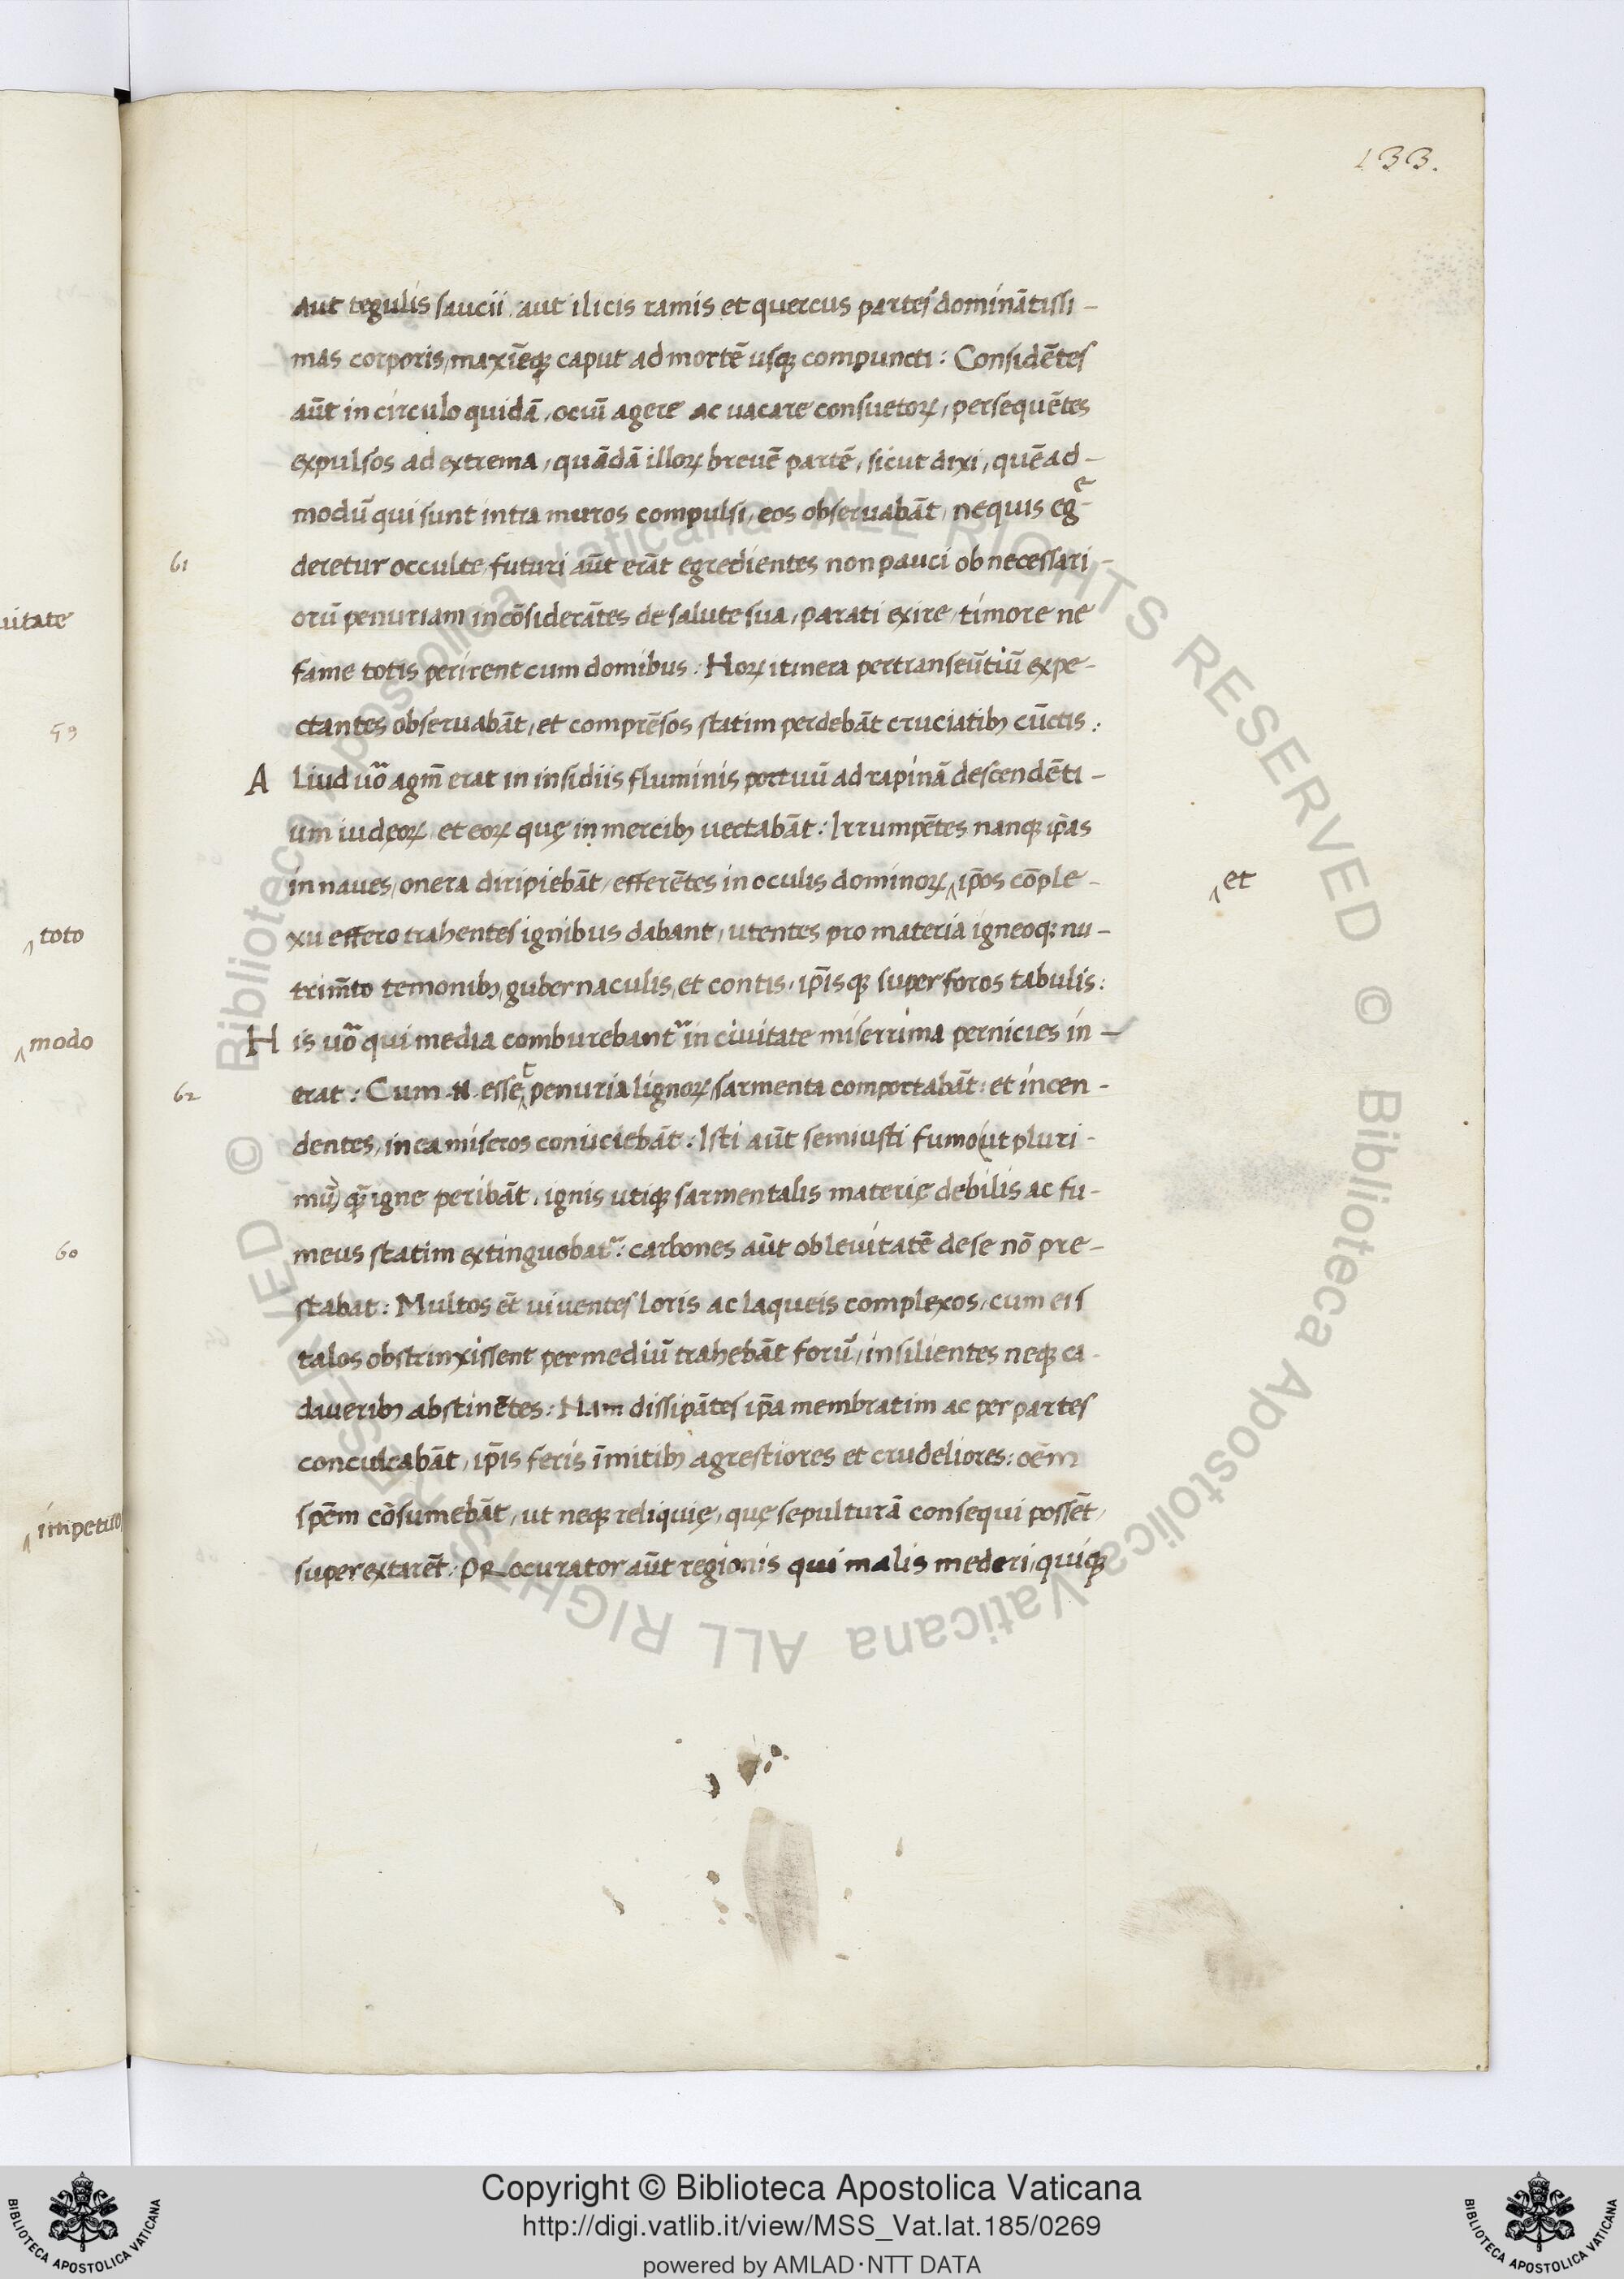 133.
aut tegulis saucii. aut ilicis ramis et quercus partes dominãtissi-
mas corporis, maxĩeqꝫ caput ad mortẽ usqꝫ compuncti: Considẽtes
aũt in circulo quidã, ociũ agere ac uacare consuetoꝝ, persequẽtes
expulsos ad extrema, quãdã illoꝝ breuẽ partẽ, sicut dixi, quẽad-
modũ qui sunt intra muros compulsi, eos obseruabãt, nequis egͤ-
61
deretur occulte, futuri aũt erãt egredientes non pauci ob necessari-
orũ penuriam incõsiderãtes de salute sua, parati exire, timore ne
uitate
fame totis perirent cum domibus: Hoꝝ itinera pertranseũtiũ expe-
59
ctantes obseruabãt, et comprẽsos statim perdebãt cruciatibꝫ cũctis:
Aliud uoᷓ agm̃ erat in insidiis fluminis portuũ ad rapinã descendẽti-
um iudęoꝝ. et eoꝝ quę in mercibꝫ uectabãt: Irrumpẽtes nanqꝫ ip̃as
in naues, onera diripiebãt, efferẽtes in oculis dominoꝝ ‸ ip̃os cõple-
‸ et
‸ toto
xu effero trahentes ignibus dabant, utentes pro materia igneoqꝫ nu-
trim̃to temonibꝫ, gubernaculis, et contis, ip̃isqꝫ super foros tabulis:
‸ modo
His uoᷓ qui media comburebant᷑ in ciuitate miserrima pernicies in-
62
erat: Cum .n. esseᵗ penuria lignoꝝ, sarmenta comportabãt: et incen-
dentes, in ea miseros coniiciebãt: Isti aũt semiusti fumo (ut pluri-
mũ) qꝫ̃ igne peribãt, ignis utiqꝫ sarmentalis materię debilis ac fu-
60
meus statim extinguobat᷑: carbones aũt ob leuitatẽ de se nõ pre-
stabat: Multos ẽt uiuentes loris ac laqueis complexos, cum eis
talos obstrinxissent per mediũ trahebãt forũ, insilientes neqꝫ ca-
daueribꝫ abstinẽtes: Nam dissipãtes ip̃a membratim ac per partes
conculcabãt, ip̃is feris ĩmitibꝫ agrestiores et crudeliores: oẽm
‸ impetuo
spẽm cõsumebãt, ut neqꝫ reliquię, quę sepulturã consequi possẽt,
superextarẽt. PRocurator aũt regionis qui malis mederi, quiqꝫ
© Biblioteca Apostolica Vaticana ALL RIGHTS RESERVED © Biblioteca Apostolica Vaticana ALL RIGHTS RESERVED
BIBLIOTECA APOSTOLICA VATICANA
Copyright © Biblioteca Apostolica Vaticana
http://digi.vatlib.it/view/MSS_Vat.lat.185/0269
powered by AMLAD·NTT DATA
BIBLIOTECA APOSTOLICA VATICANA